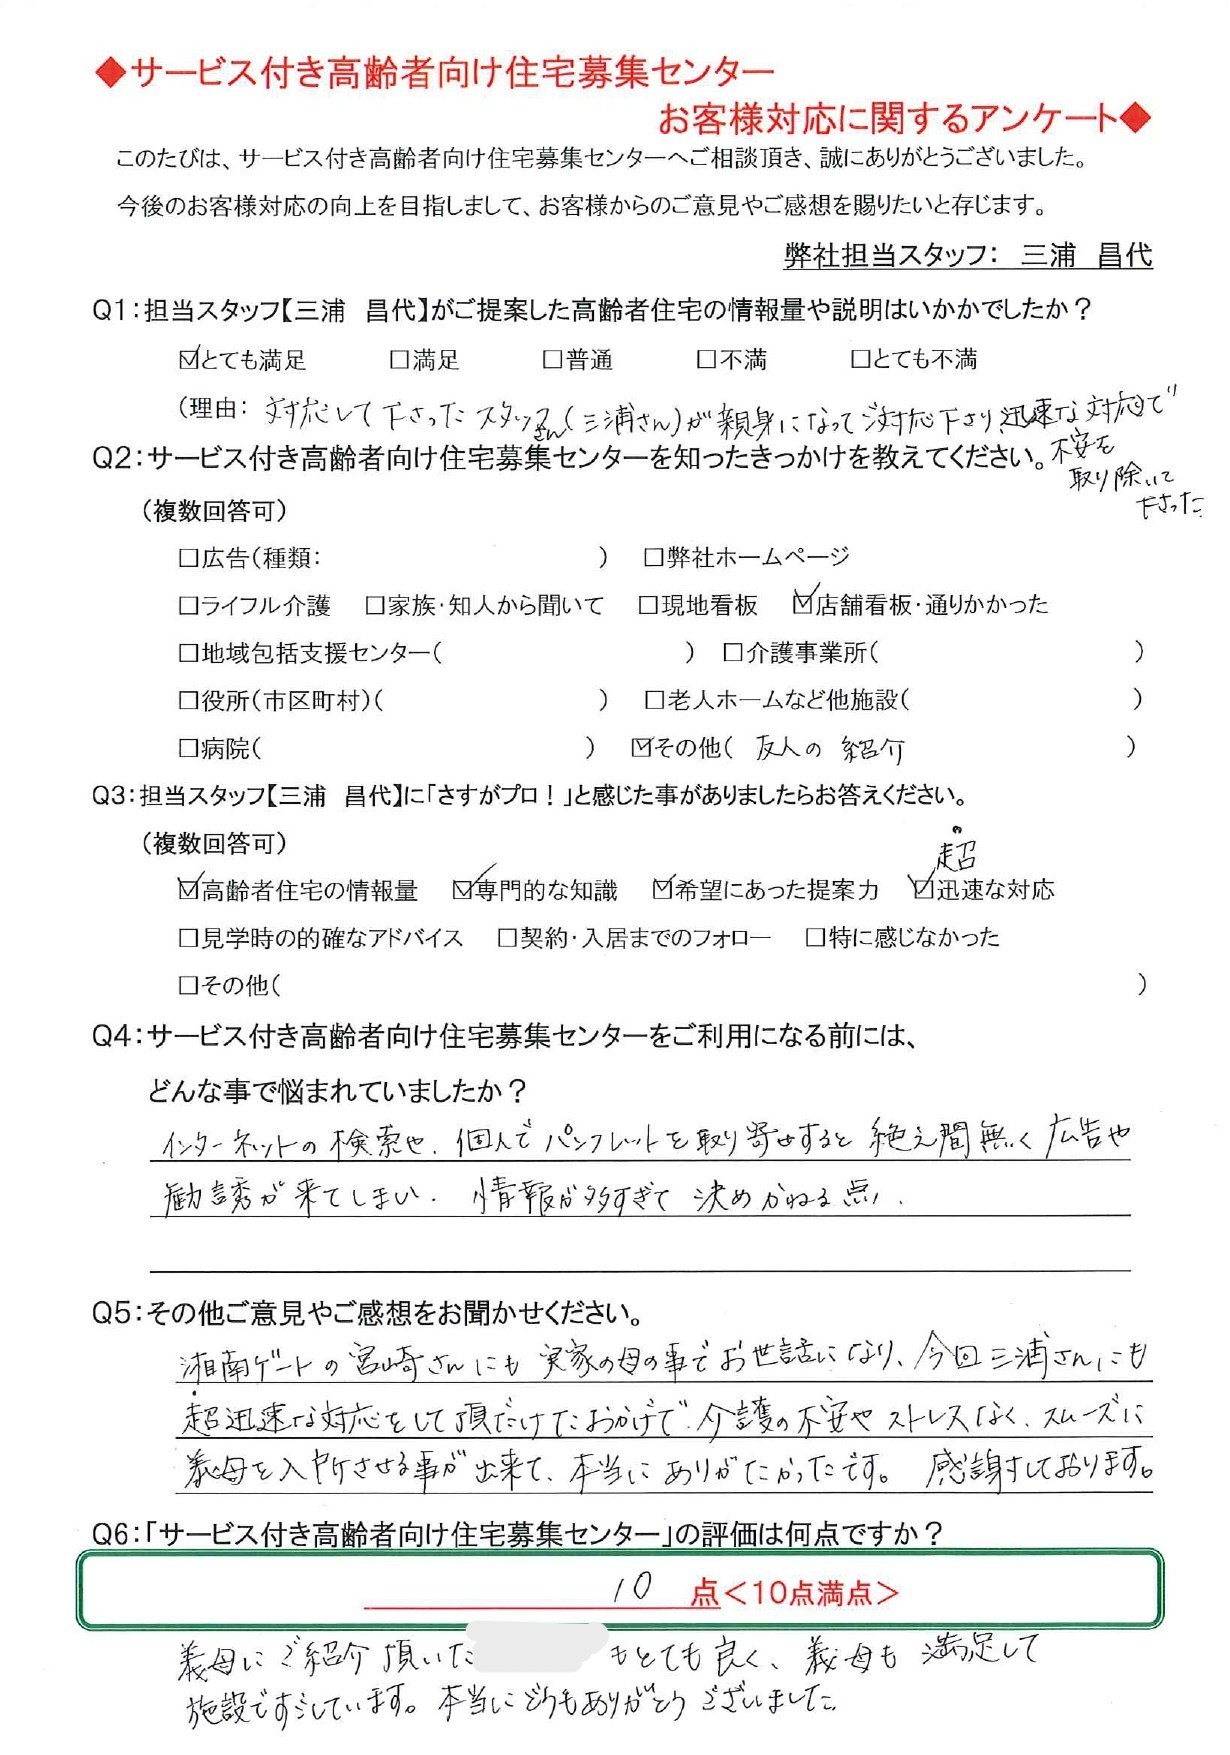 ◆サービス付き高齢者向け住宅募集センター
お客様対応に関するアンケート◆
このたびは、サービス付き高齢者向け住宅募集センターへご相談頂き、誠にありがとうございました。
今後のお客様対応の向上を目指しまして、お客様からのご意見やご感想を賜りたいと存じます。
弊社担当スタッフ: 三浦 昌代
Q1:担当スタッフ【三浦 昌代】がご提案した高齢者住宅の情報量や説明はいかかでしたか?
☑とても満足 □満足 □普通 □不満 □とても不満
(理由: 対応して下さったスタッフさん(三浦さん)が親身になってご対応下さり、迅速な対応で
不安を
取り除いて
下さった
Q2:サービス付き高齢者向け住宅募集センターを知ったきっかけを教えてください。
(複数回答可)
□広告(種類: ) □弊社ホームページ
□ライフル介護 □家族・知人から聞いて □現地看板 ☑店舗看板・通りかかった
□地域包括支援センター( ) □介護事業所( )
□役所(市区町村)( ) □老人ホームなど他施設( )
□病院( ) ☑その他( 友人の紹介 )
Q3:担当スタッフ【三浦 昌代】に「さすがプロ!」と感じた事がありましたらお答えください。
(複数回答可)
超
☑高齢者住宅の情報量 ☑専門的な知識 ☑希望にあった提案力 ☑迅速な対応
□見学時の的確なアドバイス □契約・入居までのフォロー □特に感じなかった
□その他( )
Q4:サービス付き高齢者向け住宅募集センターをご利用になる前には、
どんな事で悩まれていましたか?
インターネットの検索や、個人でパンフレットを取り寄せすると絶え間無く広告や
勧誘が来てしまい、情報が多すぎて決めかねる点、
Q5:その他ご意見やご感想をお聞かせください。
湘南ゲートの宮崎さんにも実家の母の事でお世話になり、今回三浦さんにも
超迅速な対応をして頂だけたおかげで、介護の不安やストレスなく、スムーズに
義母を入所させる事が出来て、本当にありがたかったです。 感謝しております。
Q6:「サービス付き高齢者向け住宅募集センター」の評価は何点ですか?
10 点<10点満点>
義母にご紹介頂いた もとても良く、義母も満足して
施設ですごしています。本当にどうもありがとうございました